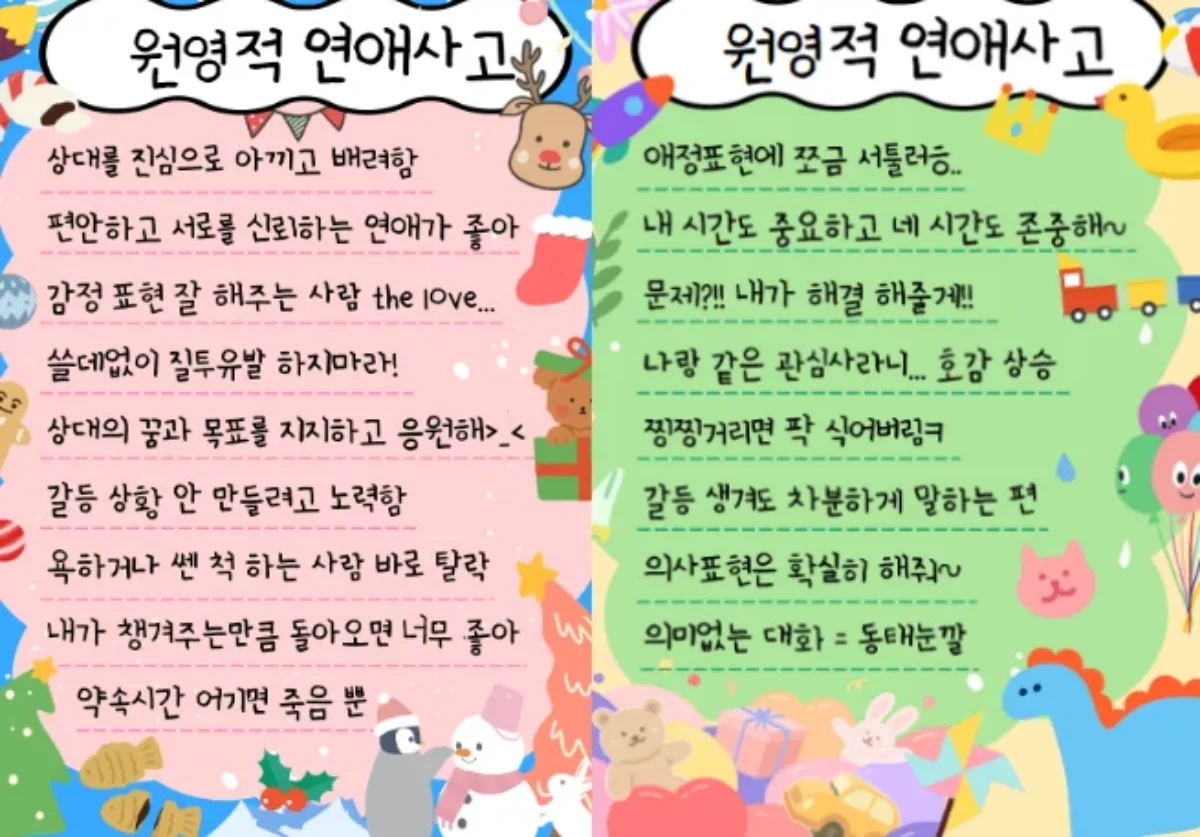 원영적 연애사고
상대를 진심으로 아끼고 배려함
편안하고 서로를 신뢰하는 연애가 좋아
감정 표현 잘 해주는 사람 the love...
쓸데없이 질투유발 하지마라!
상대의 꿈과 목표를 지지하고 응원해>_<
갈등 상황 안 만들려고 노력함
욕하거나 쎈 척 하는 사람 바로 탈락
내가 챙겨주는만큼 돌아오면 너무 좋아
약속시간 어기면 죽음 뿐
원영적 연애사고
애정표현에 쪼금 서툴러힝..
내 시간도 중요하고 네 시간도 존중해~
문제?!! 내가 해결 해줄게!!
나랑 같은 관심사라니... 호감 상승
찡찡거리면 팍 식어버림ㅋ
갈등 생겨도 차분하게 말하는 편
의사표현은 확실히 해줘~
의미없는 대화 = 동태눈깔